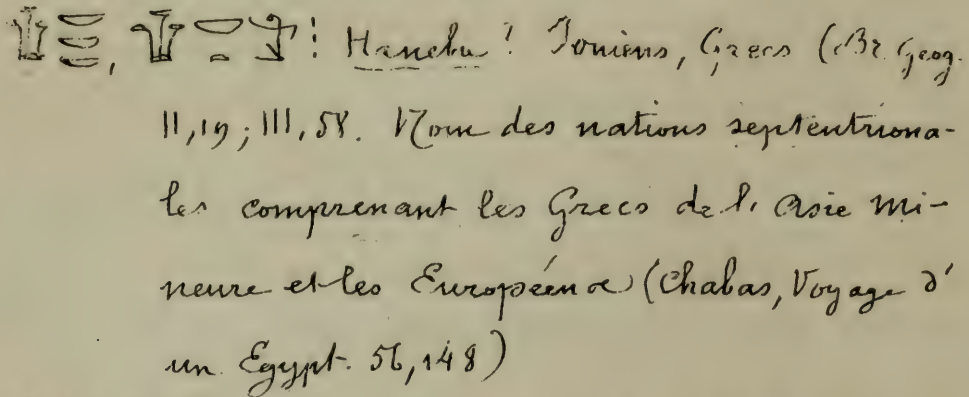 Hanebu! Ioniens, Grecs (Br. Geog.
II, 19; III, 58. Nom des nations septentriona-
les comprenant les Grecs de l'Asie Mi-
neure et les Européens (Chabas, Voyage d'
un Egypt. 56, 148)